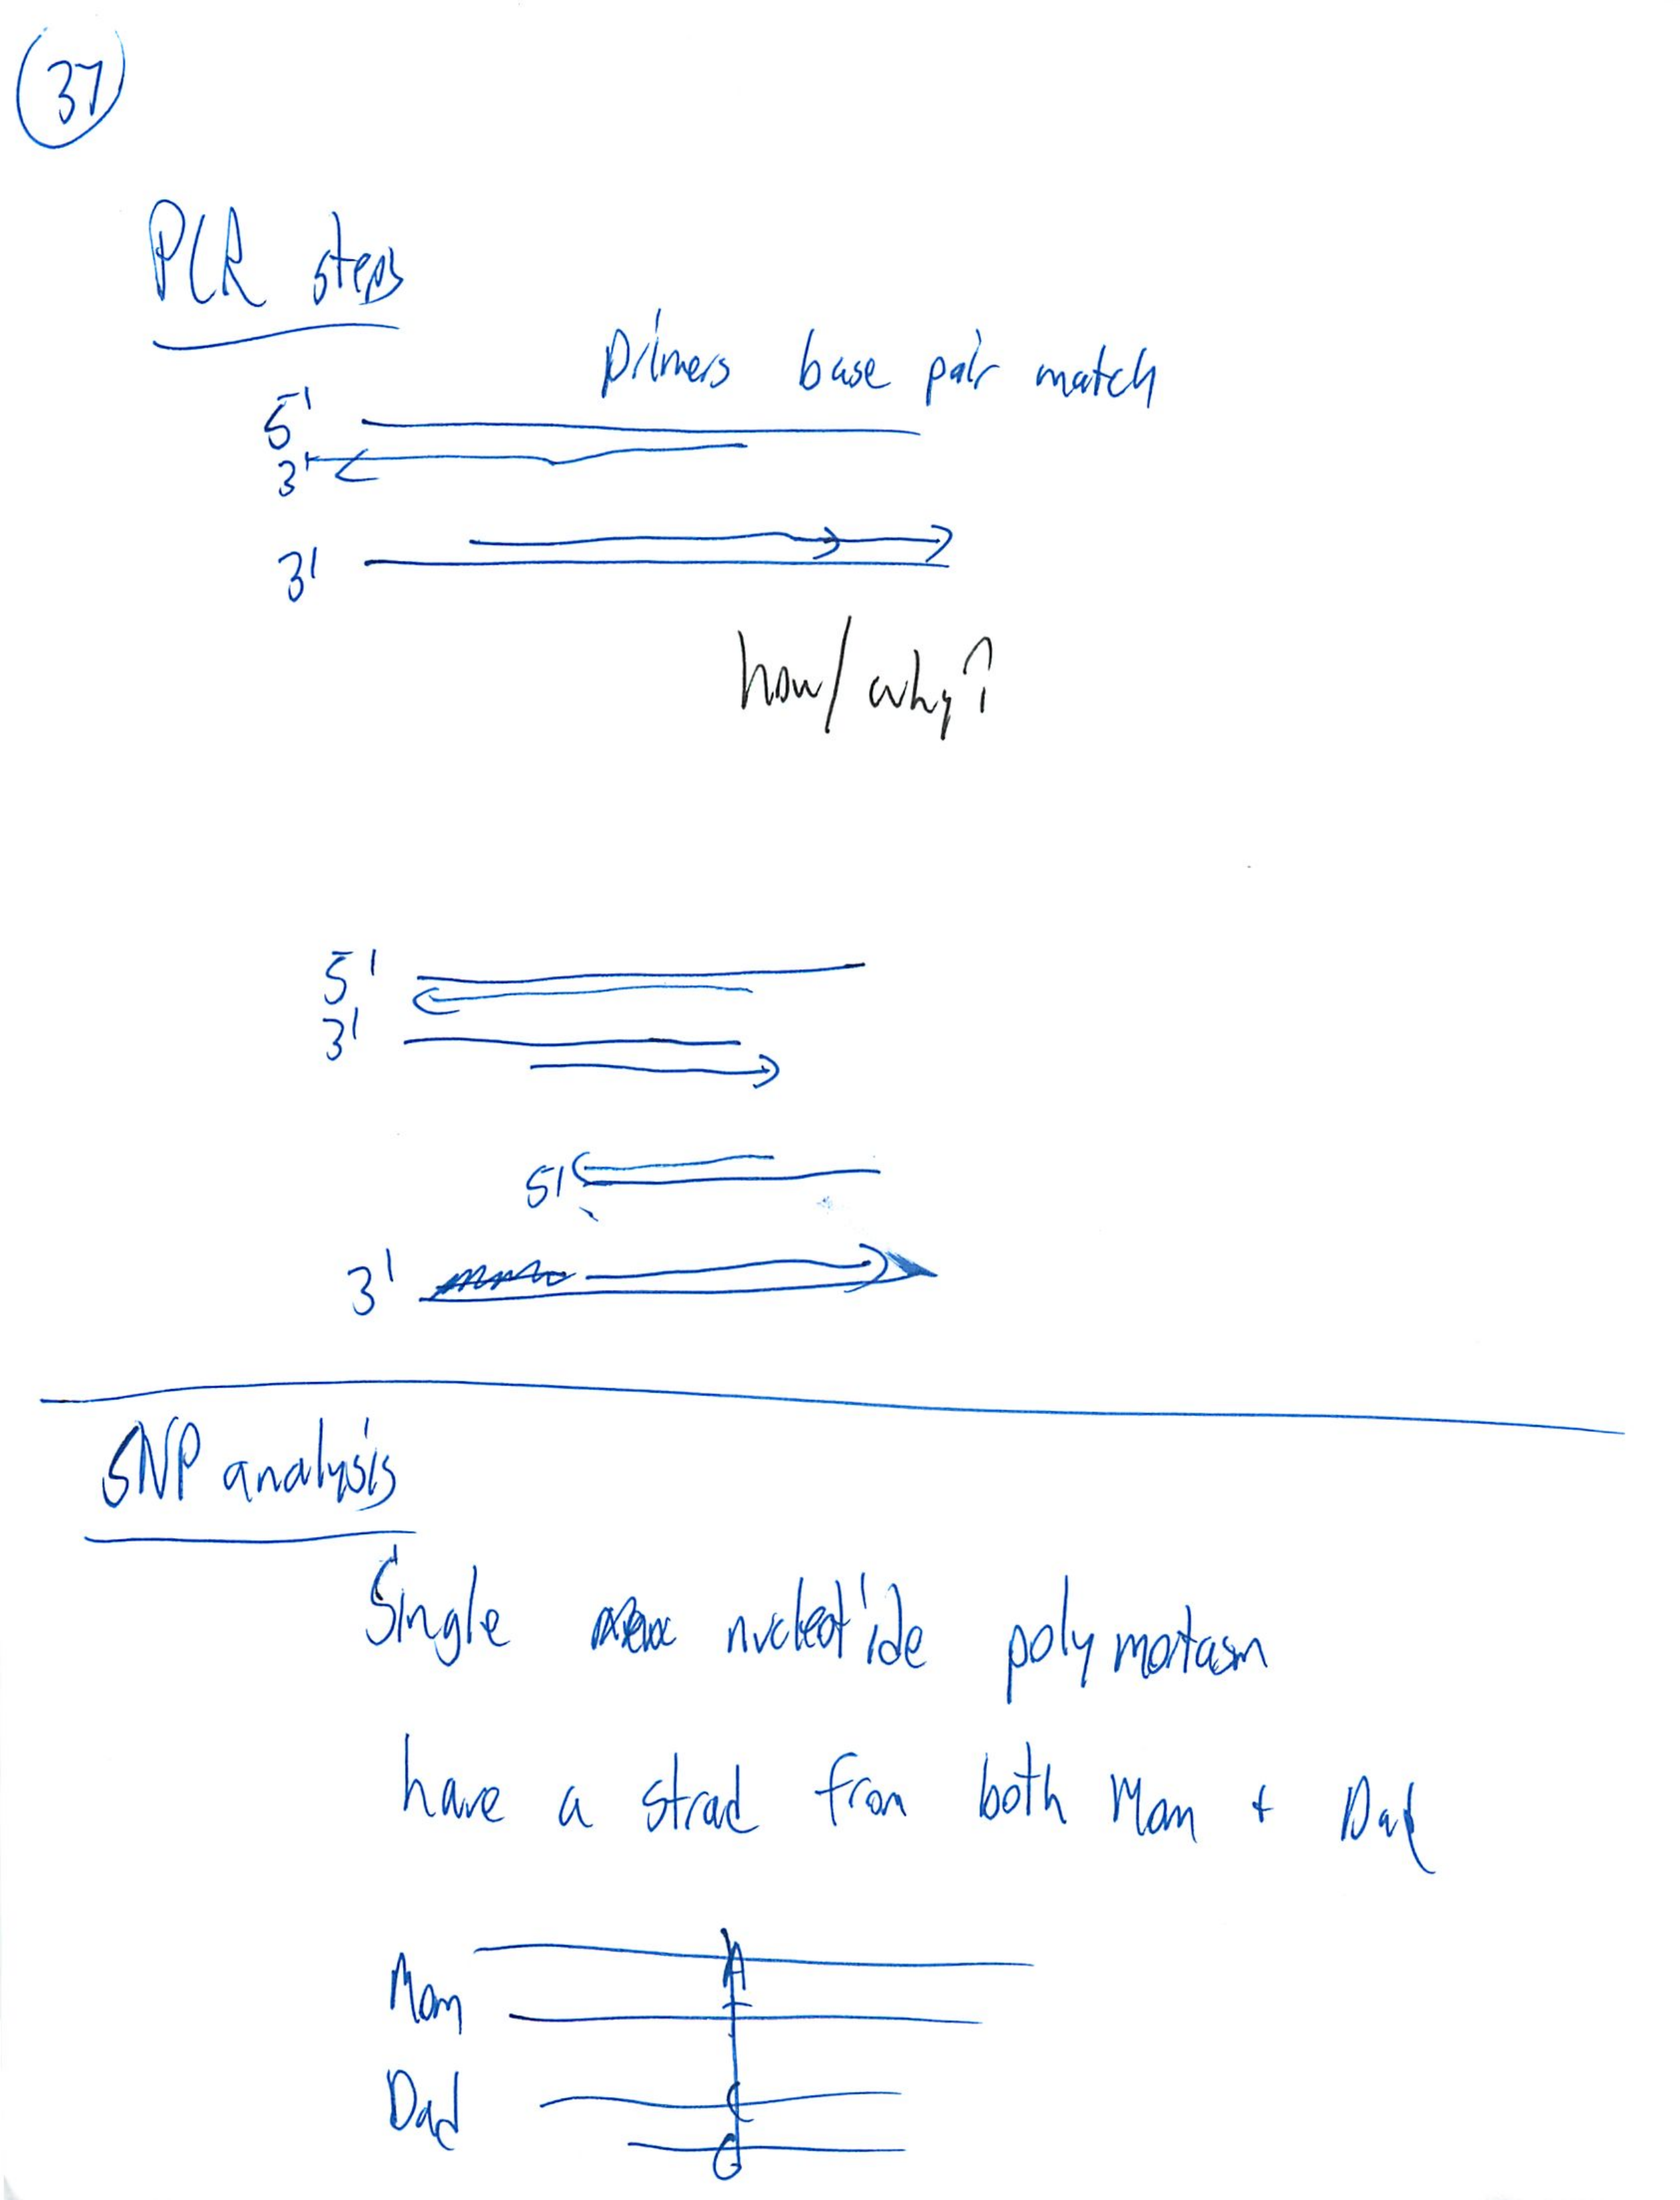 37
PCR steps
primers base pair match
5'
3'
3'
how/why?
5'
3'
5'
3'
SNP analysis
Single nucleotide polymortasm
have a strad from both Mom + Dad
Mom A
T
Dad C
G